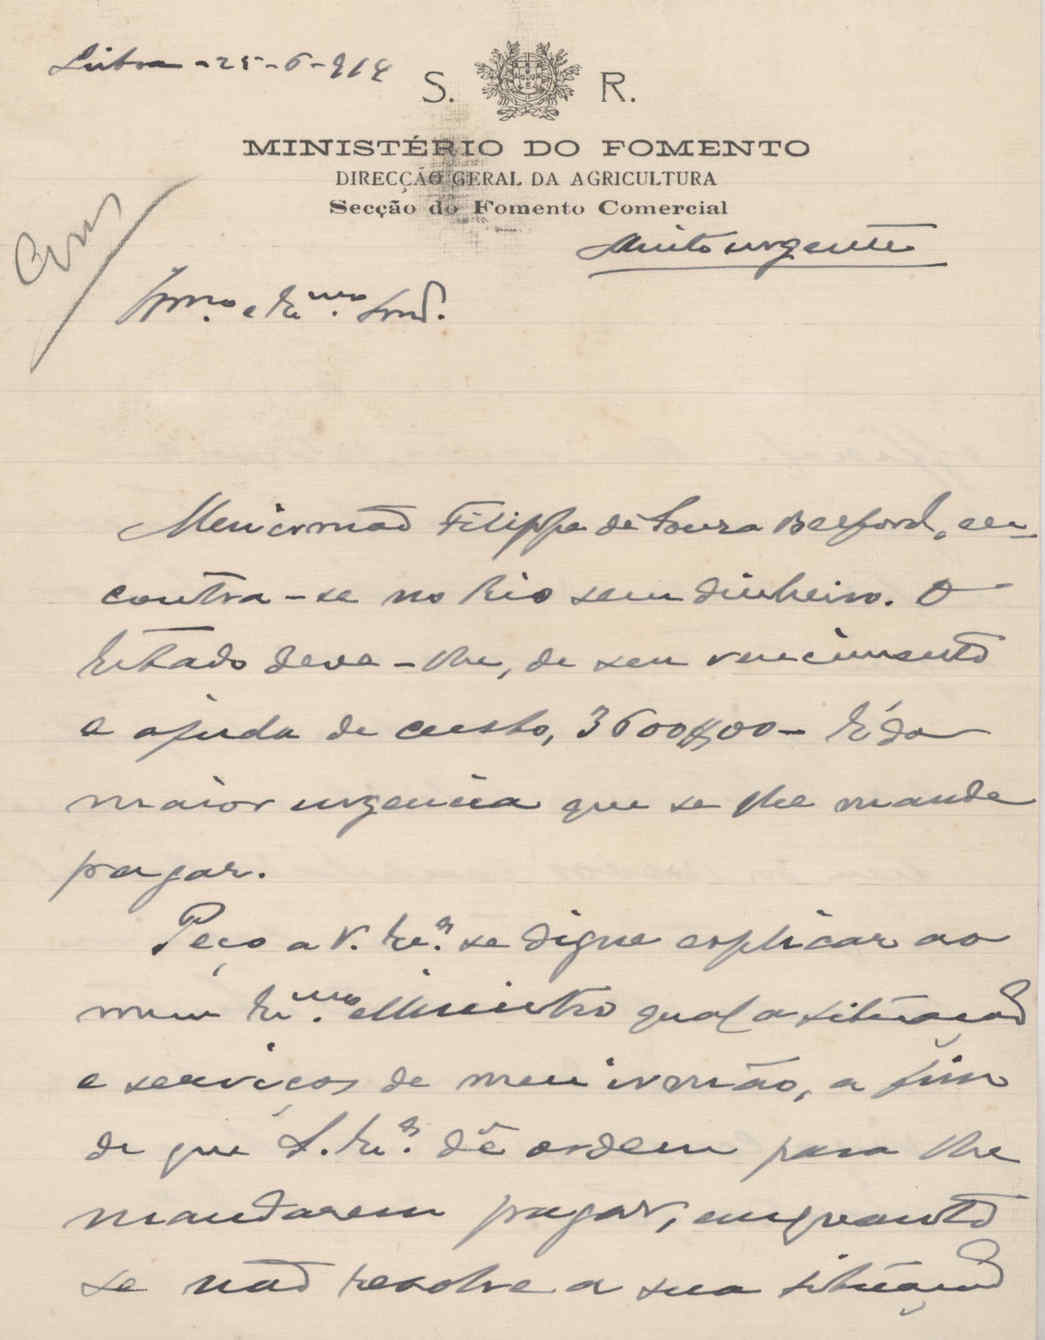 Lisboa - 25-6-914
S. R.
MINISTÉRIO DO FOMENTO
DIRECÇÃO GERAL DA AGRICULTURA
Secção do Fomento Comercial
Muito urgente
Illmo. e Exmo. Snr.
Meu irmão Filippe de Souza Belford, en-
contra-se no Rio sem dinheiro. O
Estado deve-lhe, de seu vencimento
e ajuda de custo, 3600$00 - É da
maior urgencia que se lhe mande
pagar.
Peço a V. Exa. se digne explicar ao
meu Exmo. Ministro qual a situação
e serviços de meu irmão, a fim
de que S. Exa. dê ordem para lhe
mandarem pagar, emquanto
se não resolve a sua situação